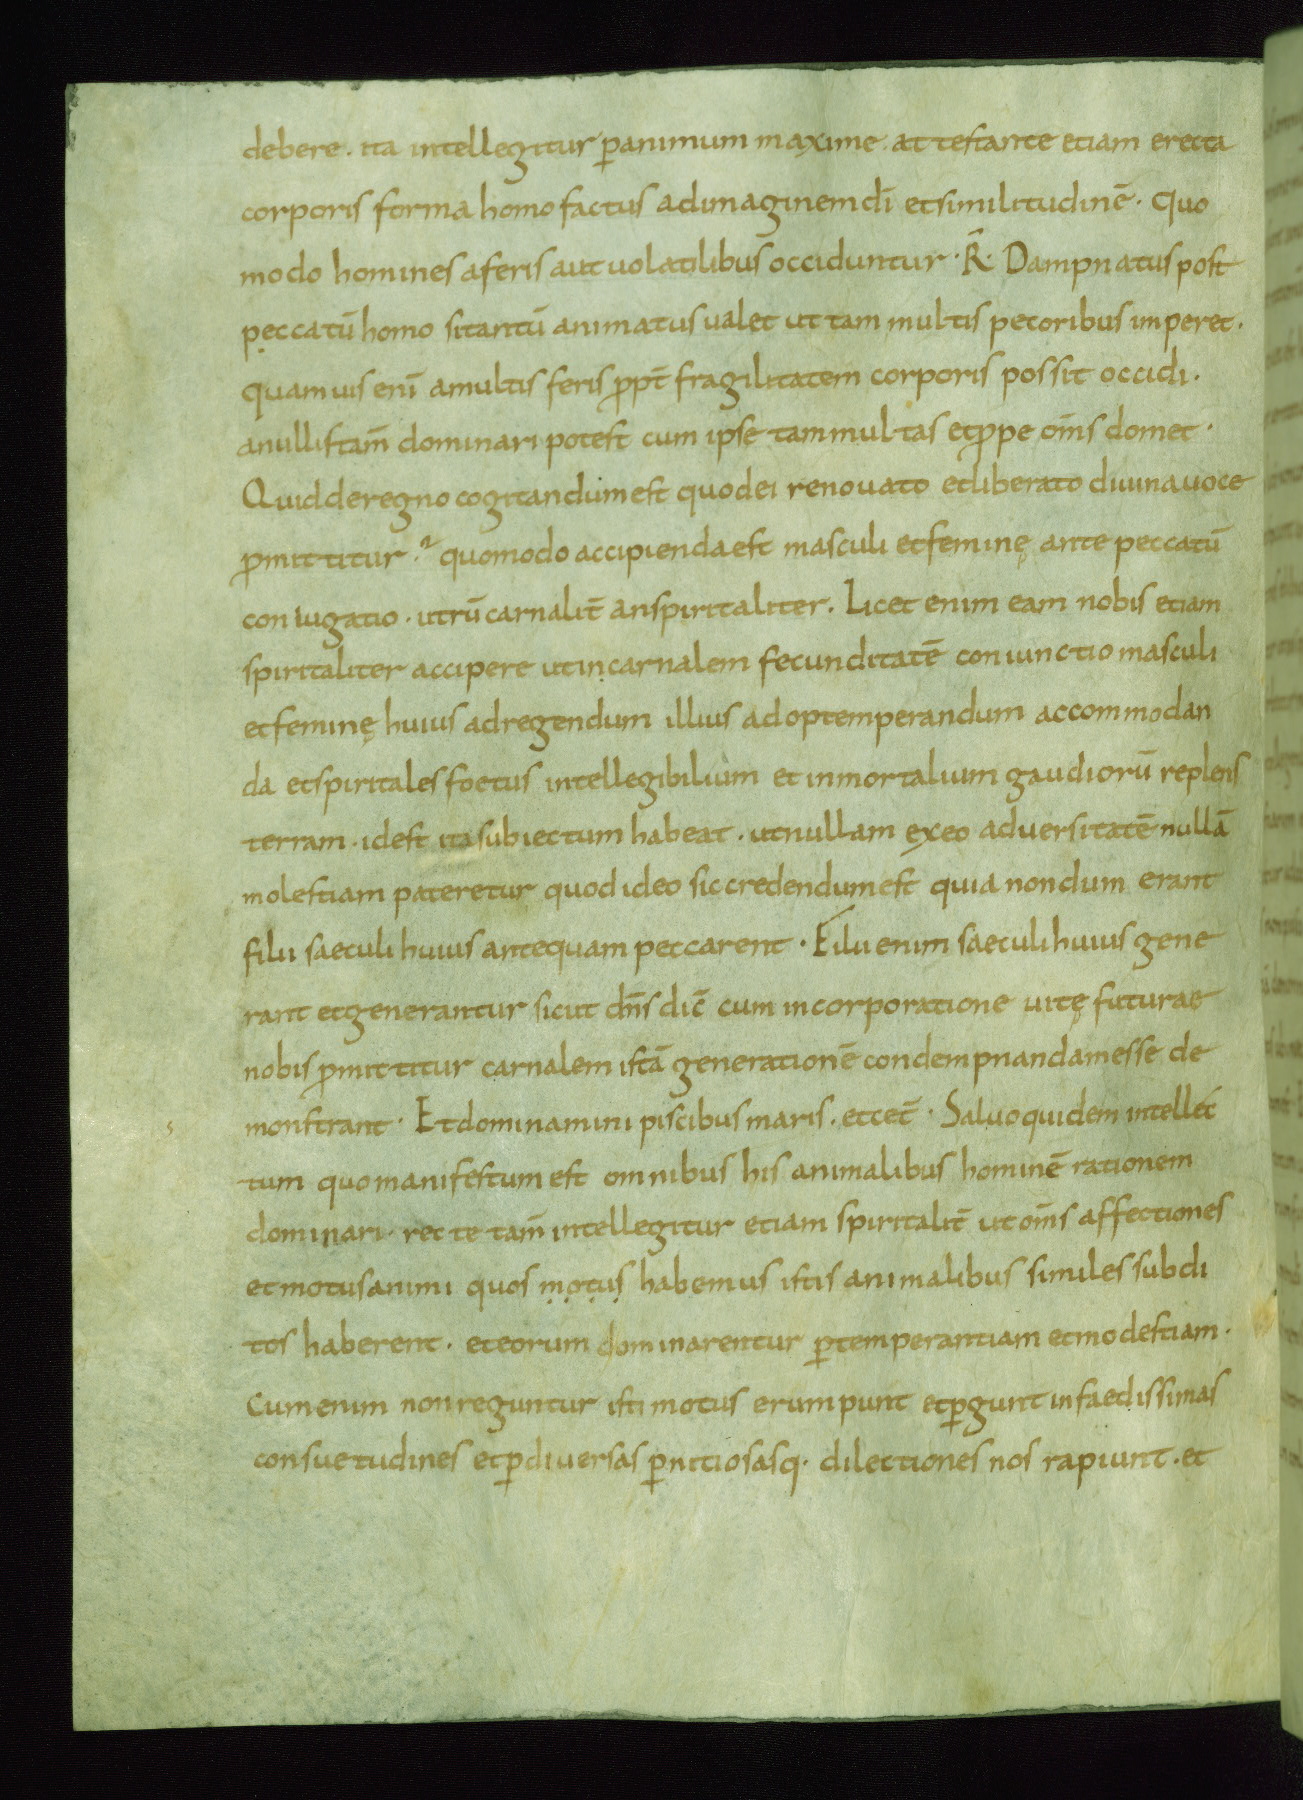 debere. ita intellegitur ꝑ animum maxime. attestante etiam erecta
corporis forma homo factus ad imaginem dī et similitudinē. Quo
modo homines a feris aut uolatilibus occiduntur. R̄. Dampnatus post
peccatū homo si tantū animatus ualet ut tam multis pecoribus imperet.
quamuis enī a multis feris ꝓpt̄ fragilitatem corporis possit occidi.
a nullis tam̄ dominari potest cum ipse tam multas et ꝓpe om̄s domet.
Quid de regno cogitandum est quod ei renouato et liberato diuina uoce
ꝓmittitur. quomodo accipienda est masculi et feminę ante peccatū
coniugatio. utrū carnalit̄ an spiritaliter. Licet enim eam nobis etiam
spiritaliter accipere ut iṇ carnalem fecunditatē coniunctio masculi
et feminę huius ad regendum illius ad optemperandum accommodan
da et spiritales foetus intellegibilium et inmortalium gaudiorū replens
terram. id est ita subiectum habeat. ut nullam ex eo aduersitatē nullā
molestiam pateretur quod ideo sic credendum est quia nondum erant
filii saeculi huius antequam peccarent. Filii enim saeculi huius gene
rant et generantur sicut dn̄s dic̄ cum in corporatione uitę futurae
nobis ꝓmittitur carnalem istā generationē condempnandam esse de
monstrant. Et dominamini piscibus maris. et cet̄. Saluo quidem intellec
tum quo manifestum est omnibus his animalibus hominē rationem
dominari. recte tam̄ intellegitur etiam spiritalit̄ ut om̄s affectiones
et motus animi quos ṃọṭụṣ habemus istis animalibus similes subdi
tos haberent. et eorum dominarentur ꝑ temperantiam et modestiam.
Cum enim non reguntur isti motus erumpunt et ꝑgunt in faedissimas
consuetudines et ꝑ diuersas ꝑnitiosasq. dilectiones nos rapiunt. et